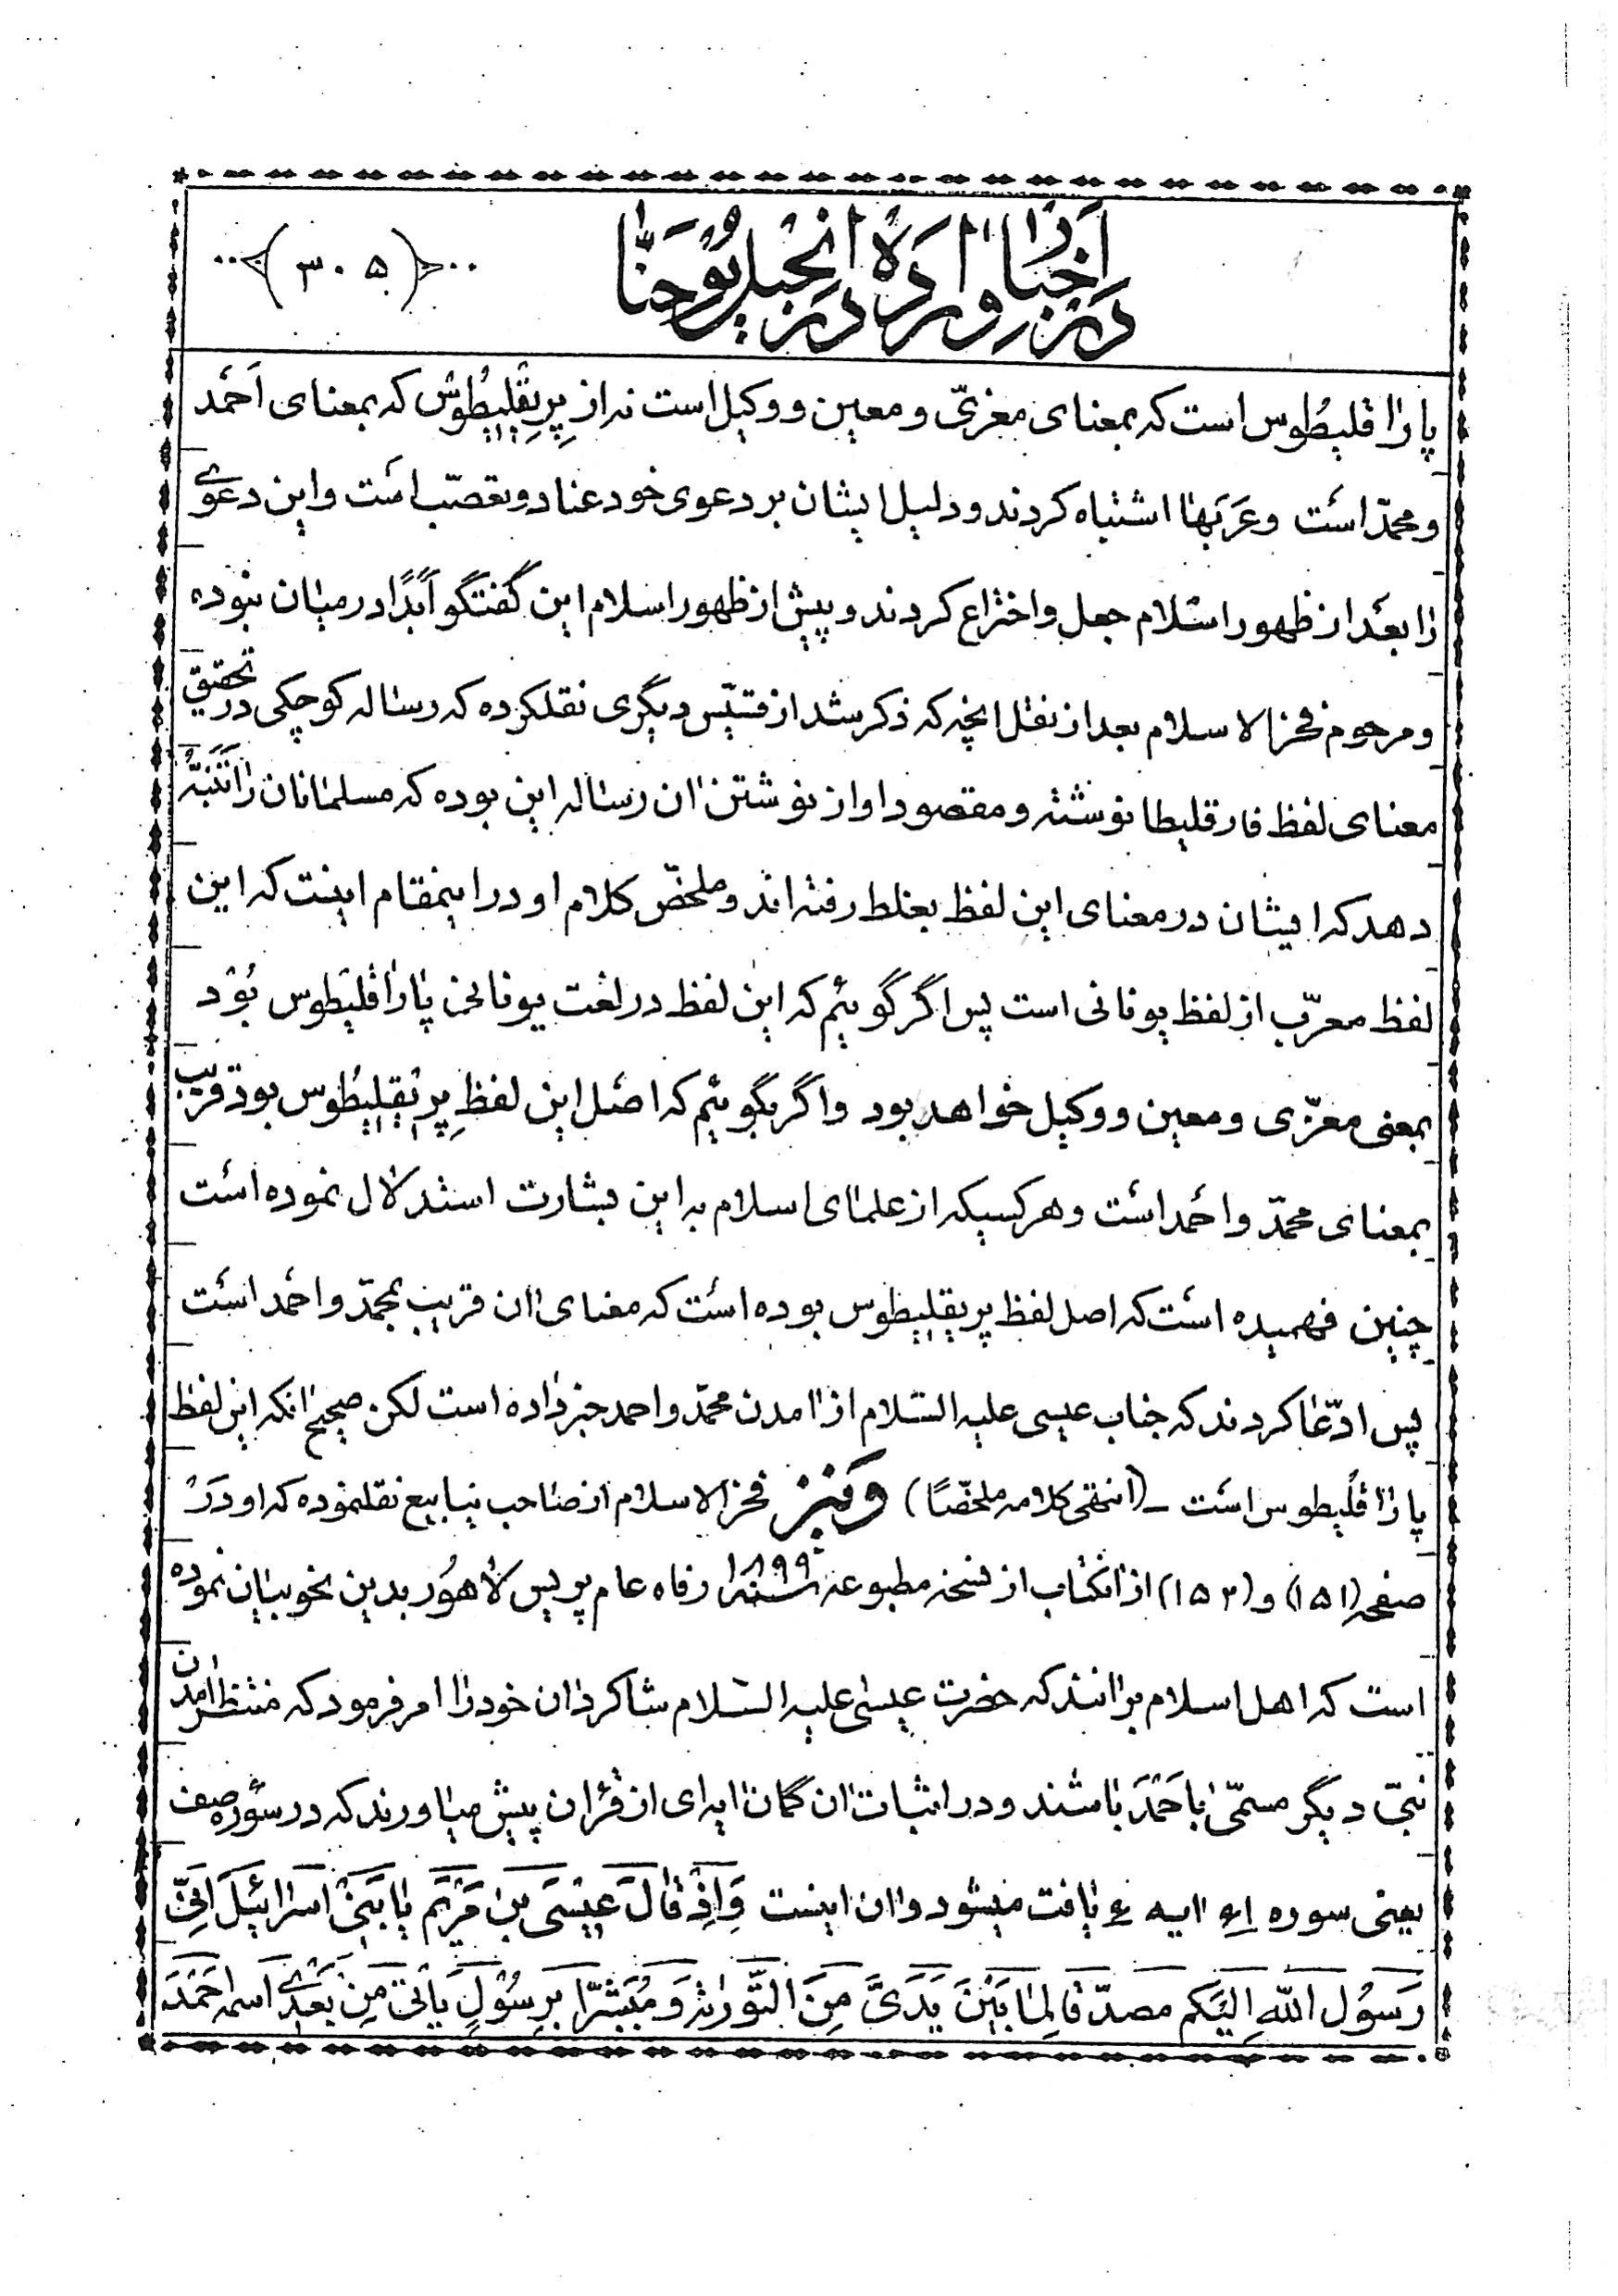 در اخبار وارده در انجیل یوحنا
(۳۰۵)
پاراقلیطوس است که بمعنای معزّی و معین و وکیل است نه از پِرِیقلِیطُوس که بمعنای اَحمد
و محمّد است و عَرَبها اشتباه کردند و دلیل ایشان بر دعوی خود عناد و تعصّب است و این دعوی
را بعد از ظهور اسلام جعل و اختراع کردند و پیش از ظهور اسلام این گفتگو اَبَدًا در میان نبوده
و مرحوم فخر الاسلام بعد از نقل انچه که ذکر شد از قسّیس دیگری نقلکرده که رساله کوچکی در تحقیق
معنای لفظ فارقلیطا نوشته و مقصود او از نوشتن ان رساله این بوده که مسلمانان را تَنَبُّه
دهد که ایشان در معنای این لفظ بغلط رفته اند و ملخّص کلام او در اینمقام اینست که این
لفظ معرّب از لفظ یونانی است پس اگر گوئیم که این لفظ در لغت یونانی پاراقلیطوس بُوَد
بمعنی معزّی و معین و وکیل خواهد بود و اگر بگوئیم که اصل این لفظِ پِریقلِیطُوس بود قریب
بمعنای محمّد و احمد است و هر کسیکه از علمای اسلام به این بشارت استدلال نموده است
چنین فهمیده است که اصل لفظ پریقلیطوس بوده است که معنای ان قریب بمحمّد و احمد است
پس ادّعا کردند که جناب عیسی علیه السّلام از امدن محمّد و احمد خبر داده است لکن صحیح انکه این لفظ
پاراقلیطوس است ـ (انتهی کلامه ملخّصًا) وَ نیز فخر الاسلام از صاحب ینابیع نقلنموده که او دَر
صفحه (۱۵۱) و (۱۵۳) از انکتاب از نسخه مطبوعه سنه ۱۸۹۹ رفاه عام پریس لاهوُر بدین نحو بیان نموده
است که اهل اسلام براانند که حضرت عیسی علیه السّلام شاکردان خود را امر فرمود که منتظر امدن
نبیّ دیگر مسمّی باَحمَدَ باشند و در اثبات ان گمان ایه ای از قران پیش میاورند که در سوُره صف
یعنی سوره ۶۱ ایه ۶ یافت میشود و ان اینست وَاِذْ قالَ عیسَی بن مَرْیَم یا بَنی اسرائیلَ انّی
رَسوُل اللهِ الَیکم مصدّقا لِما بَیْنَ یَدَیَّ مِنَ التّوریةِ وَ مُبَشّرًا بِرسُوُلٍ یأتی مِن بَعْدی اسمه احمَدَ